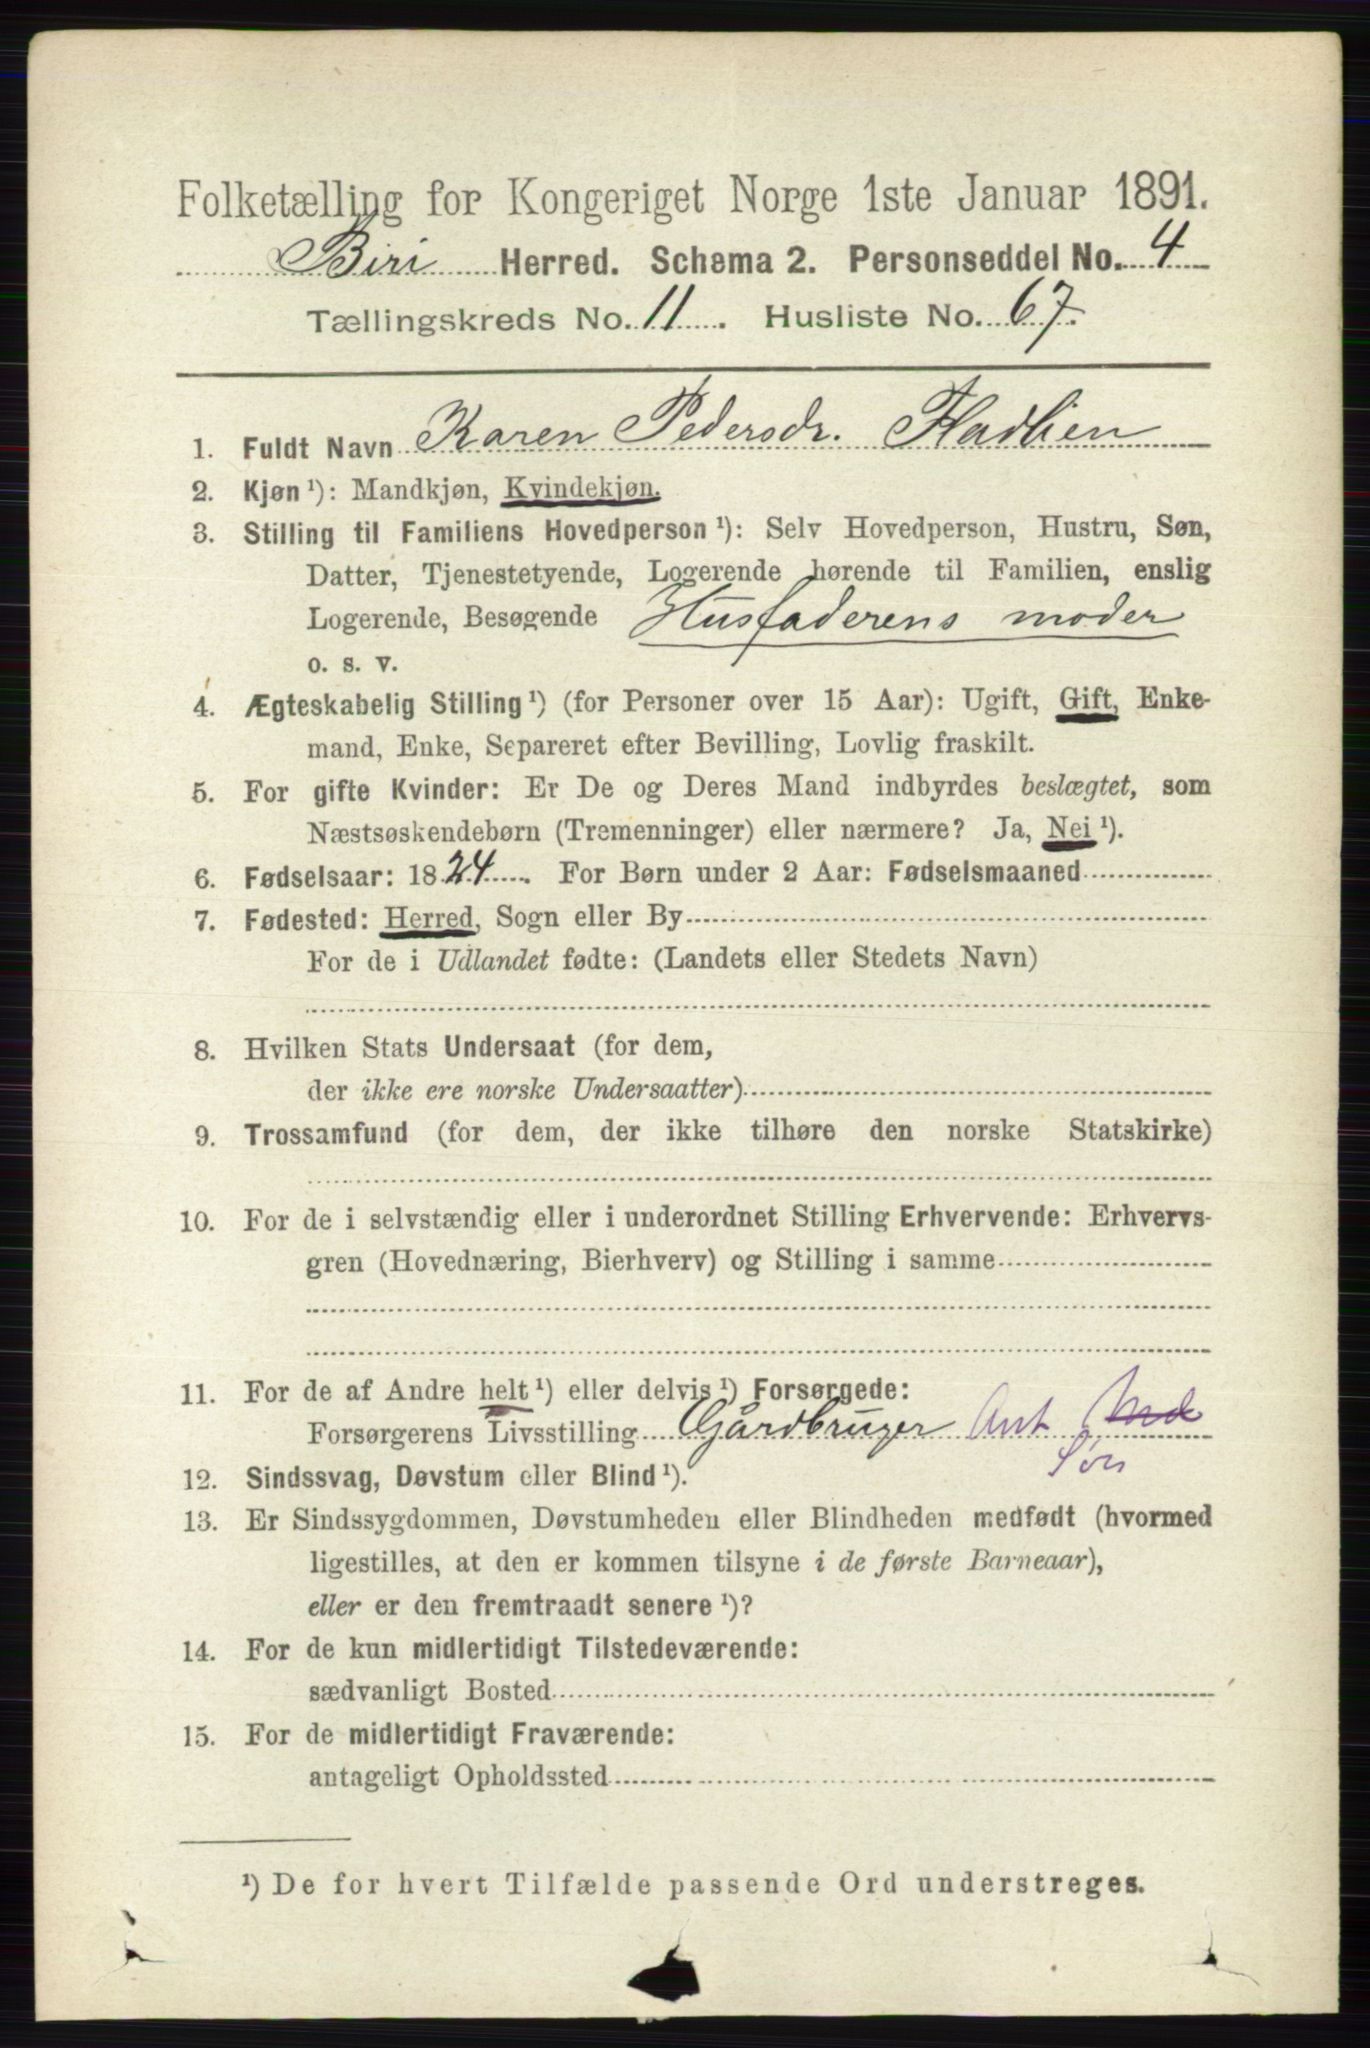 Folketælling for Kongeriget Norge 1ste Januar 1891.
Biri Herred. Schema 2. Personseddel No. 4
Tællingskreds No. 11. Husliste No. 67.
1. Fuldt Navn Karen Pedersdr. Fladlien
2. Kjøn ¹): Mandkjøn, Kvindekjøn.
3. Stilling til Familiens Hovedperson ¹): Selv Hovedperson, Hustru, Søn,
Datter, Tjenestetyende, Logerende hørende til Familien, enslig
Logerende, Besøgende Husfaderens moder
o. s. v.
4. Ægteskabelig Stilling ¹) (for Personer over 15 Aar): Ugift, Gift, Enke-
mand, Enke, Separeret efter Bevilling, Lovlig fraskilt.
5. For gifte Kvinder: Er De og Deres Mand indbyrdes beslægtet, som
Næstsøskendebørn (Tremenninger) eller nærmere? Ja, Nei ¹).
6. Fødselsaar: 1824. For Børn under 2 Aar: Fødselsmaaned
7. Fødested: Herred, Sogn eller By
For de i Udlandet fødte: (Landets eller Stedets Navn)
8. Hvilken Stats Undersaat (for dem,
der ikke ere norske Undersaatter)
9. Trossamfund (for dem, der ikke tilhøre den norske Statskirke)
10. For de i selvstændig eller i underordnet Stilling Erhvervende: Erhvervs-
gren (Hovednæring, Bierhverv) og Stilling i samme
11. For de af Andre helt ¹) eller delvis ¹) Forsørgede:
Forsørgerens Livsstilling Gårdbruger
Søn
12. Sindssvag, Døvstum eller Blind ¹).
13. Er Sindssygdommen, Døvstumheden eller Blindheden medfødt (hvormed
ligestilles, at den er kommen tilsyne i de første Barneaar),
eller er den fremtraadt senere ¹)?
14. For de kun midlertidigt Tilstedeværende:
sædvanligt Bosted
15. For de midlertidigt Fraværende:
antageligt Opholdssted
¹) De for hvert Tilfælde passende Ord understreges.